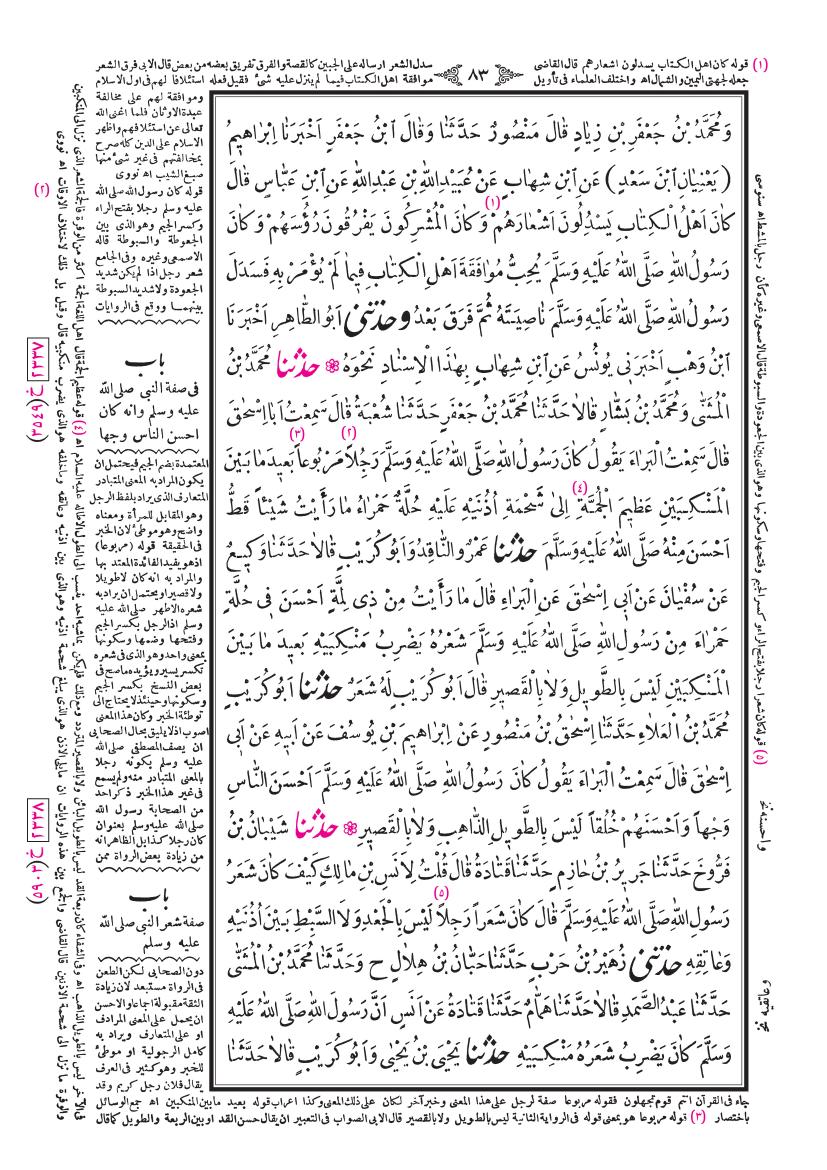 (١) قوله كان اهل الكتاب يسدلون اشعارهم قال القاضى
جعله لجهتى اليمين والشمال اه واختلف العلماء فى تأويل
٨٣
سدل الشعر ارساله على الجبين كالقصة والفرق تفريق بعضه من بعض قال الابى فرق الشعر
موافقة اهل الكتاب فيما لم ينزل عليه شئ فقيل فعله استئلافا لهم فى اول الاسلام
وَمُحَمَّدُ بْنُ جَعْفَرِ بْنِ زِيَادٍ قَالَ مَنْصُورٌ حَدَّثَنَا وَقَالَ ابْنُ جَعْفَرٍ اَخْبَرَنَا اِبْرَاهِيمُ
( يَعْنِيَانِ ابْنَ سَعْدٍ ) عَنِ ابْنِ شِهَابٍ عَنْ عُبَيْدِاللّٰهِ بْنِ عَبْدِاللّٰهِ عَنِ ابْنِ عَبَّاسٍ قَالَ
كَانَ اَهْلُ الْكِتَابِ يَسْدِلُونَ اَشْعَارَهُمْ (١) وَكَانَ الْمُشْرِكُونَ يَفْرُقُونَ رُؤُسَهُمْ وَكَانَ
رَسُولُ اللّٰهِ صَلَّى اللّٰهُ عَلَيْهِ وَسَلَّمَ يُحِبُّ مُوَافَقَةَ اَهْلِ الْكِتَابِ فِيمَا لَمْ يُؤْمَرْ بِهِ فَسَدَلَ
رَسُولُ اللّٰهِ صَلَّى اللّٰهُ عَلَيْهِ وَسَلَّمَ نَاصِيَتَهُ ثُمَّ فَرَقَ بَعْدُ وحَدَّثَنِى اَبُو الطَّاهِرِ اَخْبَرَنَا
ابْنُ وَهْبٍ اَخْبَرَنِى يُونُسُ عَنِ ابْنِ شِهَابٍ بِهٰذَا الْاِسْنَادِ نَحْوَهُ ❁ حَدَّثَنَا مُحَمَّدُ بْنُ
الْمُثَنّٰى وَمُحَمَّدُ بْنُ بَشَّارٍ قَالَا حَدَّثَنَا مُحَمَّدُ بْنُ جَعْفَرٍ حَدَّثَنَا شُعْبَةُ قَالَ سَمِعْتُ اَبَا اِسْحٰقَ
قَالَ سَمِعْتُ الْبَرَاءَ يَقُولُ كَانَ رَسُولُ اللّٰهِ صَلَّى اللّٰهُ عَلَيْهِ وَسَلَّمَ رَجُلاً (٢) مَرْبُوعاً (٣) بَعِيدَ مَا بَيْنَ
الْمَنْكِبَيْنِ عَظِيمَ الْجُمَّةِ (٤) اِلىٰ شَحْمَةِ اُذُنَيْهِ عَلَيْهِ حُلَّةٌ حَمْرَاءُ مَا رَأَيْتُ شَيْئاً قَطُّ
اَحْسَنَ مِنْهُ صَلَّى اللّٰهُ عَلَيْهِ وَسَلَّمَ حَدَّثَنَا عَمْرٌو النَّاقِدُ وَاَبُو كُرَيْبٍ قَالَا حَدَّثَنَا وَكِيعٌ
عَنْ سُفْيَانَ عَنْ اَبِى اِسْحٰقَ عَنِ الْبَرَاءِ قَالَ مَا رَأَيْتُ مِنْ ذِى لِمَّةٍ اَحْسَنَ فِى حُلَّةٍ
حَمْرَاءَ مِنْ رَسُولِ اللّٰهِ صَلَّى اللّٰهُ عَلَيْهِ وَسَلَّمَ شَعْرُهُ يَضْرِبُ مَنْكِبَيْهِ بَعِيدَ مَا بَيْنَ
الْمَنْكِبَيْنِ لَيْسَ بِالطَّوِيلِ وَلَا بِالْقَصِيرِ قَالَ اَبُو كُرَيْبٍ لَهُ شَعَرٌ حَدَّثَنَا اَبُو كُرَيْبٍ
مُحَمَّدُ بْنُ الْعَلَاءِ حَدَّثَنَا اِسْحٰقُ بْنُ مَنْصُورٍ عَنْ اِبْرَاهِيمَ بْنِ يُوسُفَ عَنْ اَبِيهِ عَنْ اَبِى
اِسْحٰقَ قَالَ سَمِعْتُ الْبَرَاءَ يَقُولُ كَانَ رَسُولُ اللّٰهِ صَلَّى اللّٰهُ عَلَيْهِ وَسَلَّمَ اَحْسَنَ النَّاسِ
وَجْهاً وَاَحْسَنَهُمْ خُلُقاً لَيْسَ بِالطَّوِيلِ الذَّاهِبِ وَلَا بِالْقَصِيرِ ❁ حَدَّثَنَا شَيْبَانُ بْنُ
فَرُّوخَ حَدَّثَنَا جَرِيرُ بْنُ حَازِمٍ حَدَّثَنَا قَتَادَةُ قَالَ قُلْتُ لِاَنَسِ بْنِ مَالِكٍ كَيْفَ كَانَ شَعَرُ
رَسُولِ اللّٰهِ صَلَّى اللّٰهُ عَلَيْهِ وَسَلَّمَ قَالَ كَانَ شَعَراً رَجِلاً (٥) لَيْسَ بِالْجَعْدِ وَلَا السَّبْطِ بَيْنَ اُذُنَيْهِ
وَعَاتِقِهِ حَدَّثَنِى زُهَيْرُ بْنُ حَرْبٍ حَدَّثَنَا حَبَّانُ بْنُ هِلَالٍ ح وَحَدَّثَنَا مُحَمَّدُ بْنُ الْمُثَنّٰى
حَدَّثَنَا عَبْدُ الصَّمَدِ قَالَا حَدَّثَنَا هَمَّامٌ حَدَّثَنَا قَتَادَةُ عَنْ اَنَسٍ اَنَّ رَسُولَ اللّٰهِ صَلَّى اللّٰهُ عَلَيْهِ
وَسَلَّمَ كَانَ يَضْرِبُ شَعَرُهُ مَنْكِبَيْهِ حَدَّثَنَا يَحْيَى بْنُ يَحْيٰى وَاَبُو كُرَيْبٍ قَالَا حَدَّثَنَا
وموافقة لهم على مخالفة
عبدة الاوثان فلما اغنى الله
تعالى عن استئلافهم واظهر
الاسلام على الدين كله صرح
بمخالفتهم فى غير شئ منها
صبغ الشيب اه نووى
(٢) قوله كان رسول الله صلى الله
عليه وسلم رجلا بفتح الراء
وكسر الجيم وهو الذى بين
الجعوطة والسبوطة قاله
الاصمعى وغيره وفى الجامع
شعر رجل اذا لم يكن شديد
الجعودة ولا شديد السبوطة
بينهما ووقع فى الروايات
باب
فى صفة النبى صلى الله
عليه وسلم وانه كان
احسن الناس وجها
المعتمدة بضم الجيم فيحتمل ان
يكون المراد به المعنى المتبادر
المتعارف الذى يراد بلفظ الرجل
وهو المقابل للمرأة ومعناه
واضح وهو موطئ لان الخبر
فى الحقيقة قوله (مربوعا)
اذ هو يفيد الفائدة المعتد بها
والمراد به انه كان لا طويلا
ولا قصيرا ويحتمل ان يراد به
شعره الاطهر صلى الله عليه
وسلم اذ الرجل بكسر الجيم
وفتحها وضمها وسكونها
بمعنى واحد وهو الذى فى شعره
تكسر يسير ويؤيده ما صح فى
بعض النسخ بكسر الجيم
وسكونها وحينئذ لا يحتاج الى
توطئة الخبر وكان هذا المعنى
اصوب اذ لا يليق بحال الصحابى
ان يصف المصطفى صلى الله
عليه وسلم بكونه رجلا
بالمعنى المتبادر منه ولم يسمع
فى غير هذا الخبر ذكر احد
من الصحابة رسول الله
صلى الله عليه وسلم بعنوان
كان رجلا كذا بل الظاهر انه
من زيادة بعض الرواة ممن
باب
صفة شعر النبى صلى الله
عليه وسلم
دون الصحابى لكن الطعن
فى الرواة مستبعد لان زيادة
الثقة مقبولة اجماعا والاحسن
ان يحمل على المعنى المرادف
او على المتعارف ويراد به
كامل الرجولية او موطئ
للخبر وهو كثير فى العرف
يقال فلان رجل كريم وقد
جاء فى القرآن انتم قوم تجهلون فقوله مربوعا صفة لرجل على هذا المعنى وخبر آخر لكان على ذلك المعنى وكذا اعراب قوله بعيد ما بين المنكبين اه جمع الوسائل
باختصار (٣) قوله مربوعا هو بمعنى قوله فى الرواية الثانية ليس بالطويل ولا بالقصير قال الابى الصواب فى التعبير ان يقال حسن القد او بين الربعة والطويل كما قال
(٥) قوله كان شعرا رجلا بفتح الراء وكسر الجيم وفتحها وسكونها وهو الذى بين الجعودة والسبوطة قال الاصمعى وغيره كأن رجل بالمشط اه سنوسى
واحسنه نخ